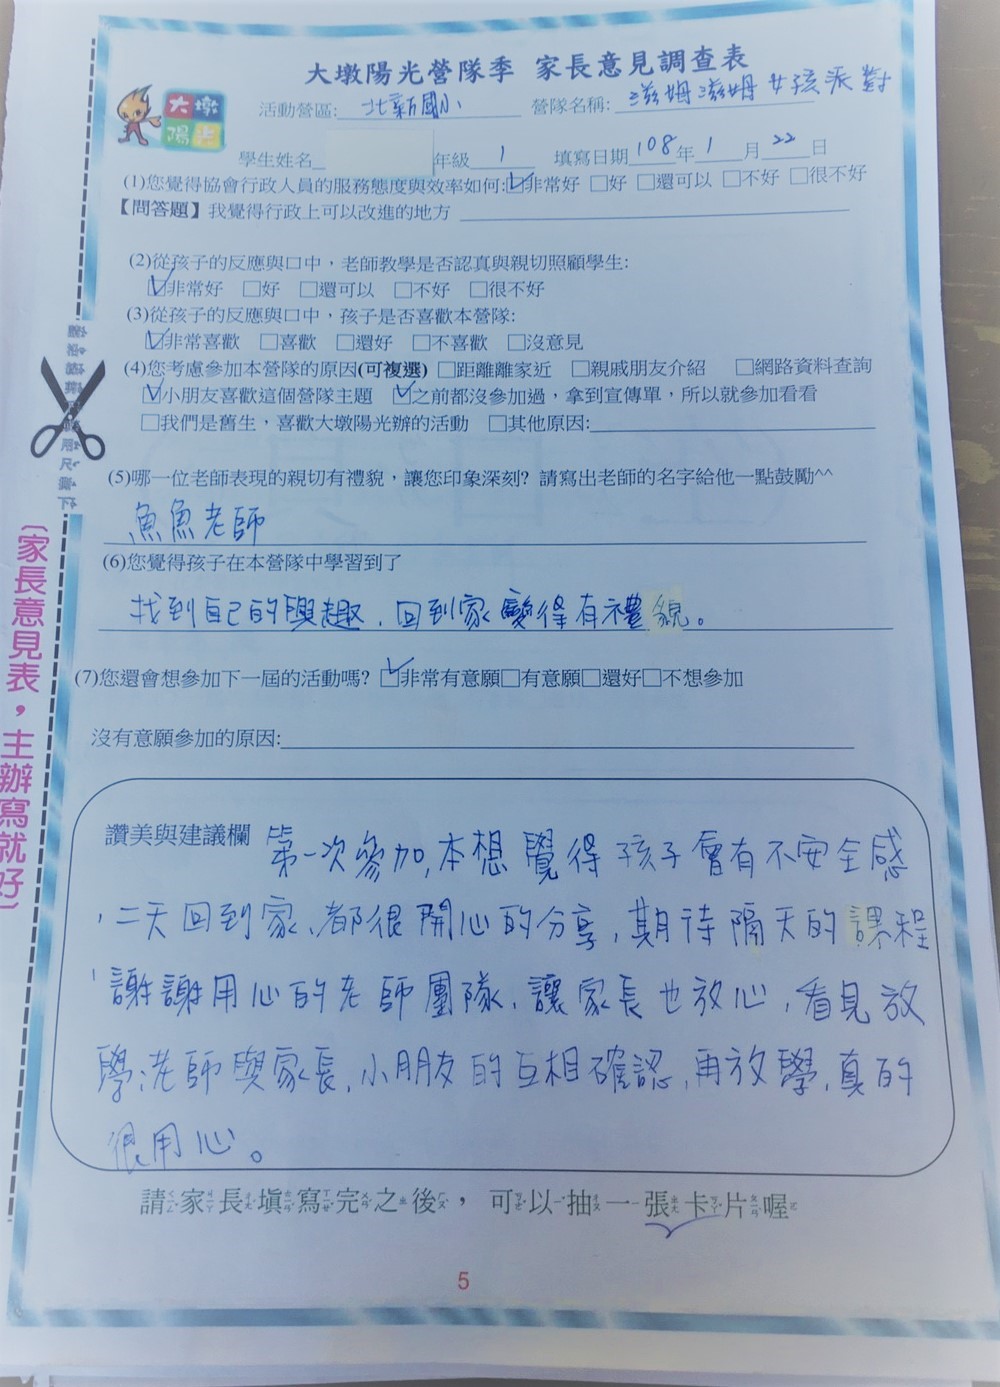 大墩陽光營隊季 家長意見調查表
大墩
陽光
活動營區: 北新國小 營隊名稱: 滋姆滋姆女孩派對
學生姓名 年級 1 填寫日期 108 年 1 月 22 日
(1)您覺得協會行政人員的服務態度與效率如何:☑非常好 □好 □還可以 □不好 □很不好
【問答題】我覺得行政上可以改進的地方
(2)從孩子的反應與口中，老師教學是否認真與親切照顧學生:
☑非常好 □好 □還可以 □不好 □很不好
(3)從孩子的反應與口中，孩子是否喜歡本營隊:
☑非常喜歡 □喜歡 □還好 □不喜歡 □沒意見
(4)您考慮參加本營隊的原因(可複選) □距離離家近 □親戚朋友介紹 □網路資料查詢
☑小朋友喜歡這個營隊主題 ☑之前都沒參加過，拿到宣傳單，所以就參加看看
□我們是舊生，喜歡大墩陽光辦的活動 □其他原因:
(5)哪一位老師表現的親切有禮貌，讓您印象深刻? 請寫出老師的名字給他一點鼓勵^^
魚魚老師
(6)您覺得孩子在本營隊中學習到了
找到自己的興趣、回到家變得有禮貌。
(7)您還會想參加下一屆的活動嗎? ☑非常有意願□有意願□還好□不想參加
沒有意願參加的原因:
讚美與建議欄 第一次參加,本想覺得孩子會有不安全感
，二天回到家、都很開心的分享，期待隔天的課程
，謝謝用心的老師團隊、讓家長也放心，看見放
學老師與家長、小朋友的互相確認、再放學，真的
很用心。
請家長填寫完之後，可以抽一張卡片喔
5
〔家長意見表，主辦寫就好〕